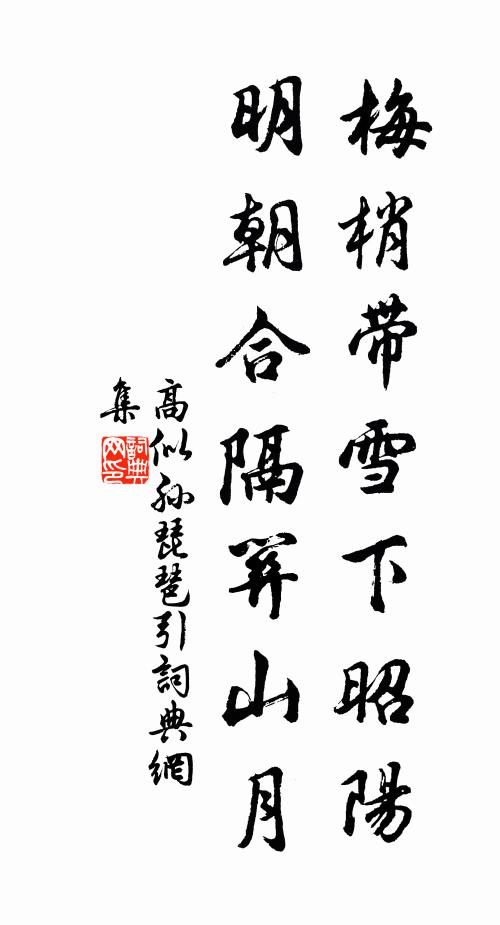 梅梢带雪下昭陽
明朝合隔関山月
高似孙琵琶引詞典網
集
詞典网印